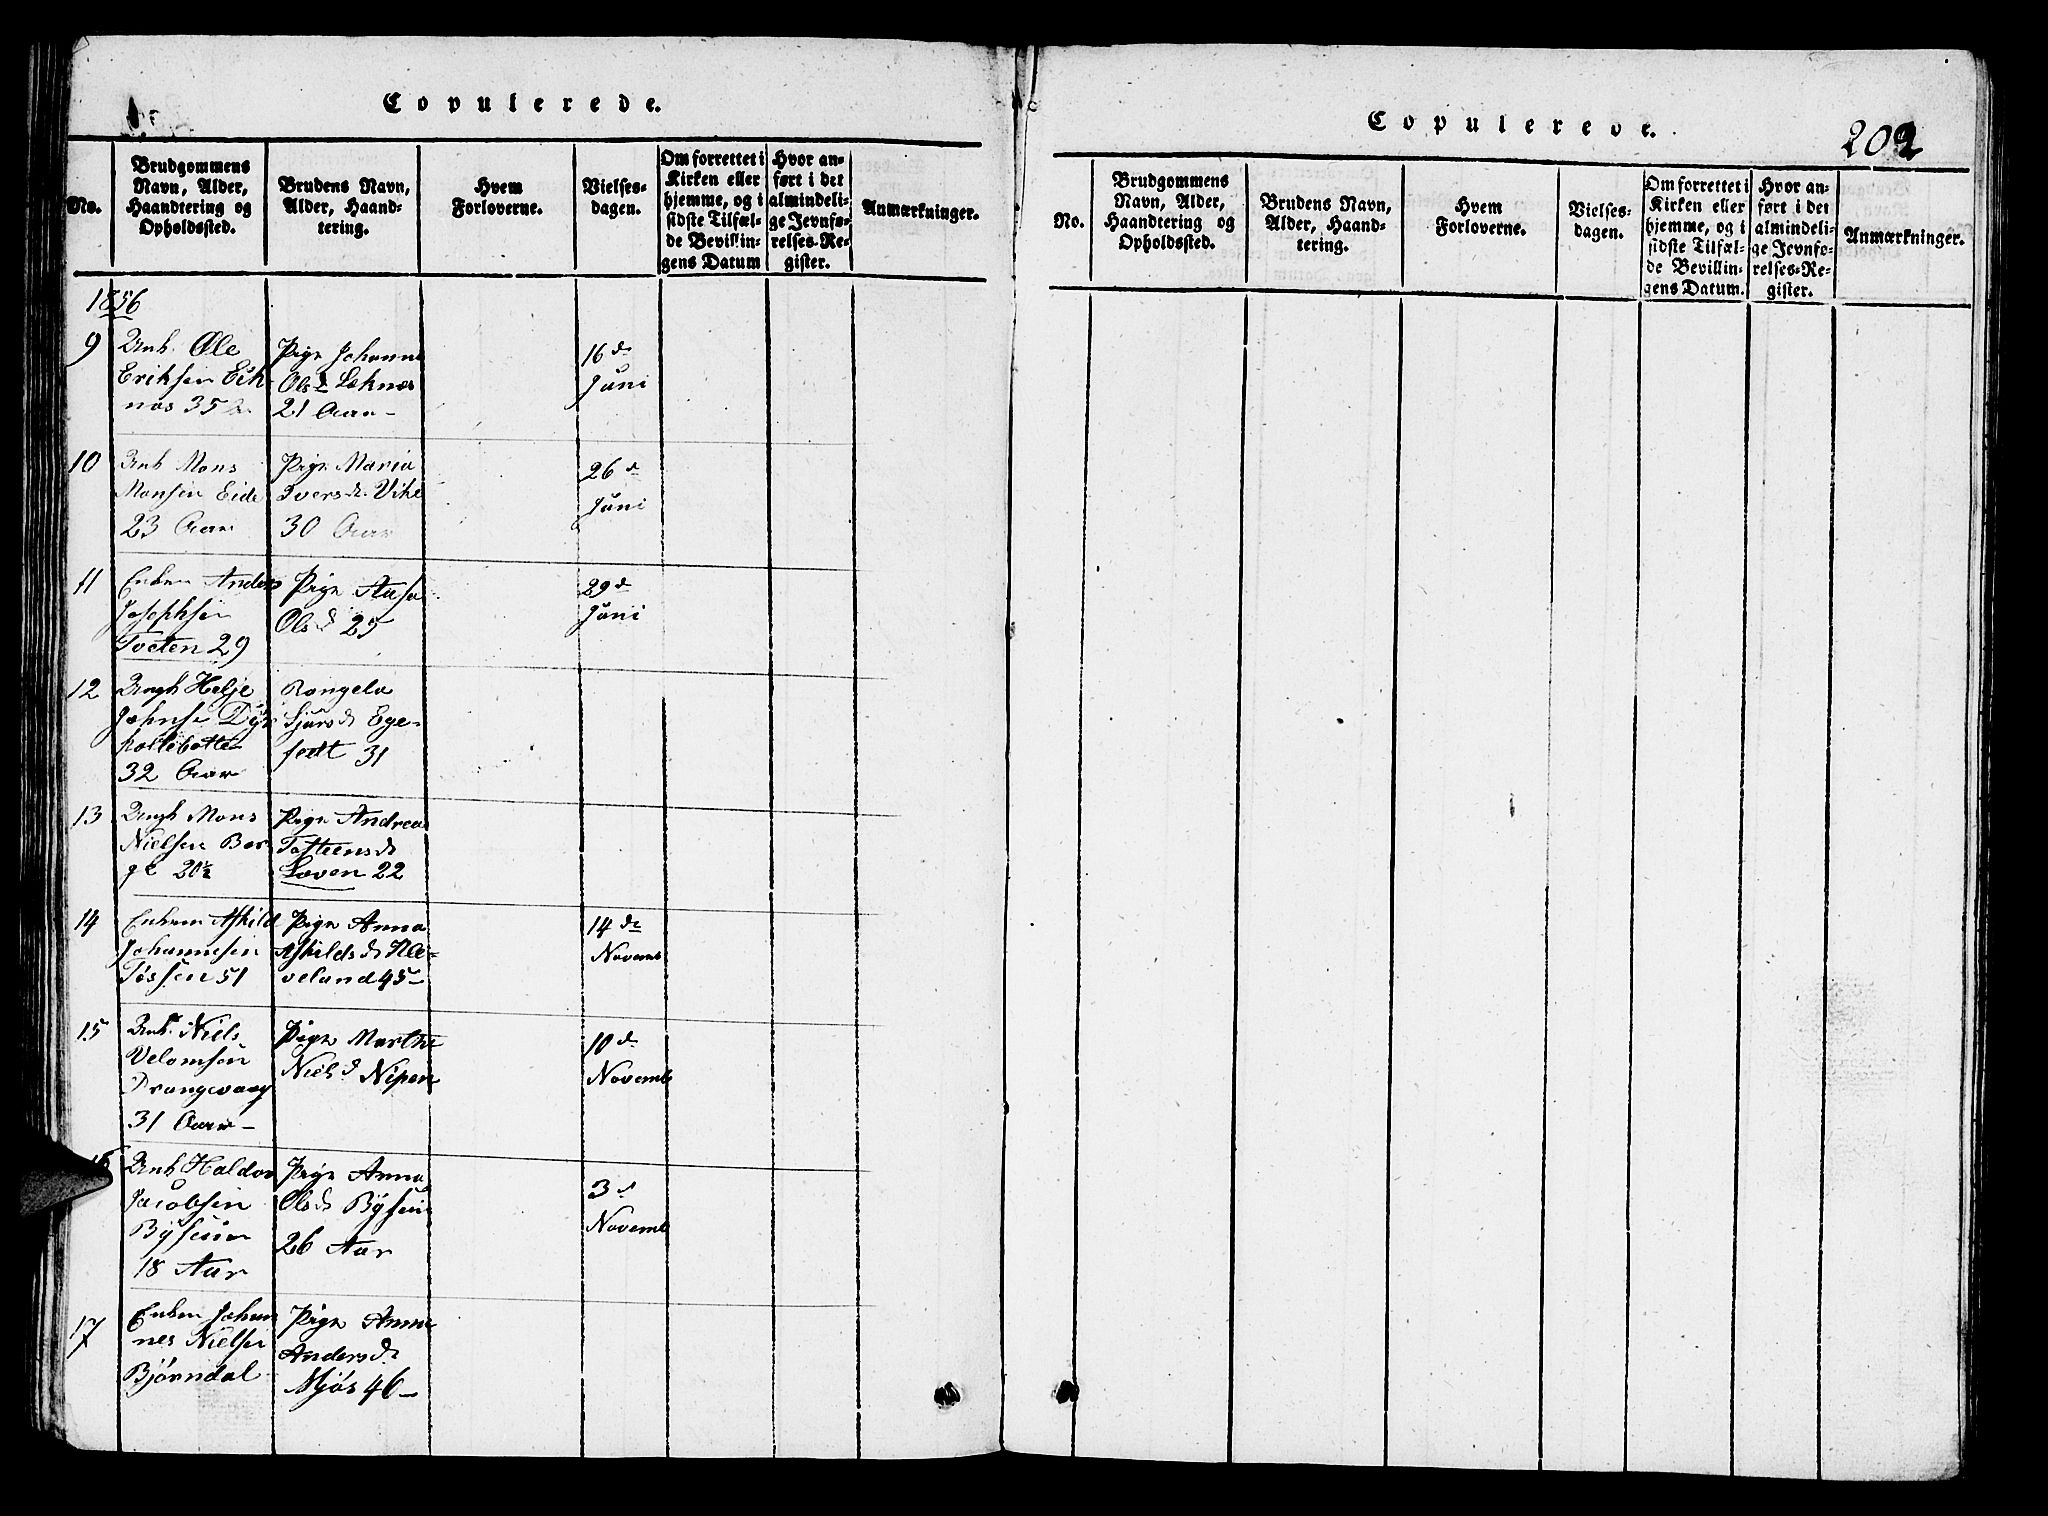 Copulerede.
No.
Brudgommens
Navn, Alder,
Haandtering og
Opholdssted.
Brudens Navn,
Alder, Haand-
tering.
Hvem
Forloverne.
Vielses-
dagen.
Om forrettet i
Kirken eller
hjemme, og i
sidste Tilfæl-
de Bevillin-
gens Datum
Hvor an-
ført i det
almindeli-
ge Jevnfø-
relses-Re-
gister.
Anmærkninger.
1856
9
Unk. Ole
Eriksen Eik-
nes 35
Pige Johanne
Olsd Løknæs
21 Aar-
16 d
Juni
10
Unk Mons
Monsen Eide
23 Aar
Pige Maria
Iversdr. Vike
30 Aar
26 d
Juni
11
Enkem Anders
Josephsen
Tveten 29
Pige Aasa
Olsd 25
29 d
Juni
12
Ungk Helje
Johnse
32 Aar
Rangela
Sjursd Ege-
fodt 31
13
Ungk Mons
Nielsen Bor
ge 20½
Pige Andrea
Tosteensd
Loven 22
14
Enkem Askild
Johannesen
Tøssen 51
Pige Anna
Askildsd Kle-
veland 45-
14 de
Novemb
15
Unk. Niels
Velomsen
Drangevaag
31 Aar-
Pige Marthe
Nielsd Nipen
10 d
Novemb
16
Unk Haldor
Jacobsen
Bysem
18 Aar
Pige Anna
Olsd Bysem
26 Aar
3 d
Novemb
17
Enkem Johan
nes Nielsen
Bjørndal
Pige Anna
Andersd
Mjøs 46-
Copulerede.
202
No.
Brudgommens
Navn, Alder,
Haandtering og
Opholdssted.
Brudens Navn,
Alder, Haand-
tering.
Hvem
Forloverne.
Vielses-
dagen.
Om forrettet i
Kirken eller
hjemme, og i
sidste Tilfæl-
de Bevillin-
gens Datum.
Hvor an-
ført i det
almindeli-
ge Jevnfø-
relses-Re-
gister.
Anmærkninger.